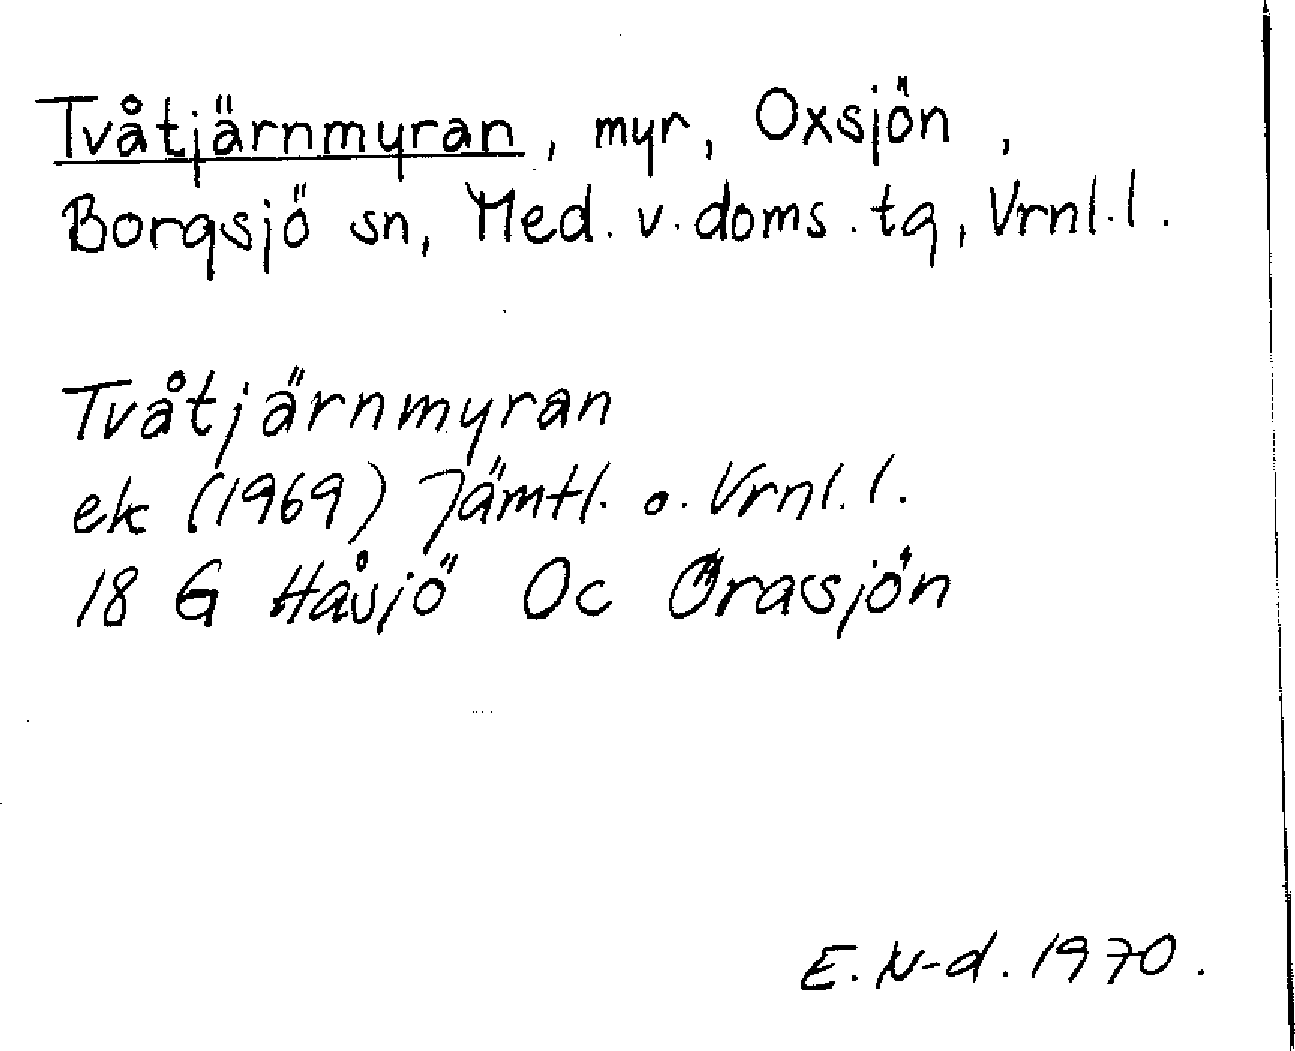 Tvåtjärnmyran, myr, Oxsjön,
Borgsjö sn, Med. v. doms. tg, Vrnl. l.
Tvåtjärnmyran
ek (1969) Jämtl. o. Vrnl. l.
18 G Håsjö Oc Örasjön
E. N-d. 1970.